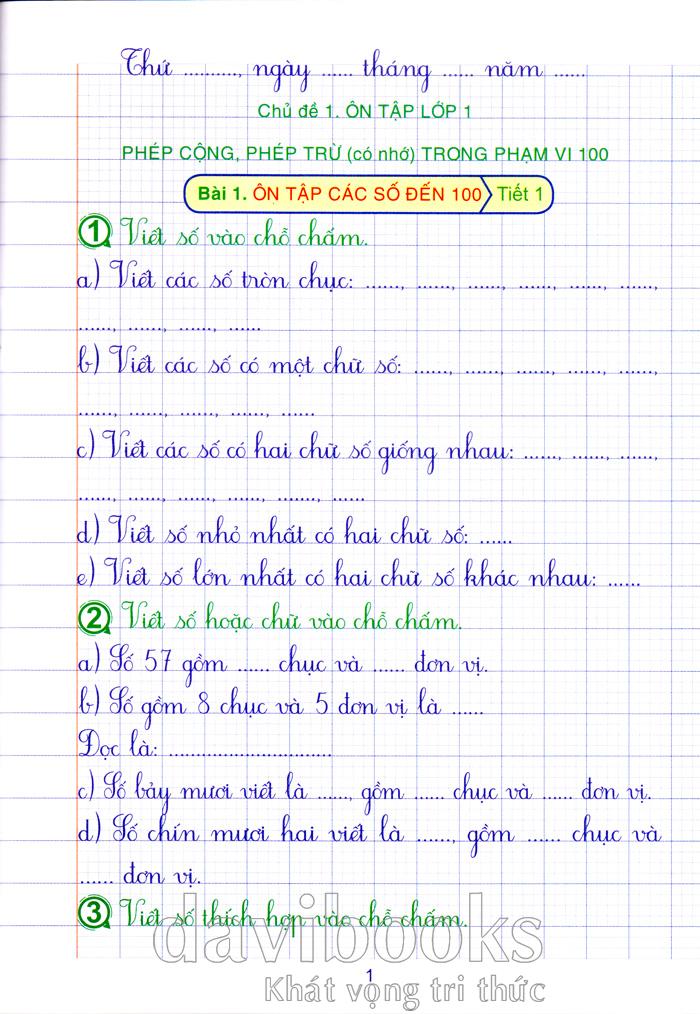 Thứ .........., ngày ...... tháng ...... năm ......
Chủ đề 1. ÔN TẬP LỚP 1
PHÉP CỘNG, PHÉP TRỪ (có nhớ) TRONG PHẠM VI 100
Bài 1. ÔN TẬP CÁC SỐ ĐẾN 100 Tiết 1
1 Viết số vào chỗ chấm.
a) Viết các số tròn chục: ......, ......, ......, ......, ......, ......,
......, ......, ......, ......
b) Viết các số có một chữ số: ......, ......, ......, ......, ......,
......, ......, ......, ......, ......
c) Viết các số có hai chữ số giống nhau: ......, ......, ......,
......, ......, ......, ......, ......, ......
d) Viết số nhỏ nhất có hai chữ số: ......
e) Viết số lớn nhất có hai chữ số khác nhau: ......
2 Viết số hoặc chữ vào chỗ chấm.
a) Số 57 gồm ...... chục và ...... đơn vị.
b) Số gồm 8 chục và 5 đơn vị là ......
Đọc là: ..............................
c) Số bảy mươi viết là ......, gồm ...... chục và ...... đơn vị.
d) Số chín mươi hai viết là ......, gồm ...... chục và
...... đơn vị.
3 Viết số thích hợp vào chỗ chấm.
davibooks
1
Khát vọng tri thức